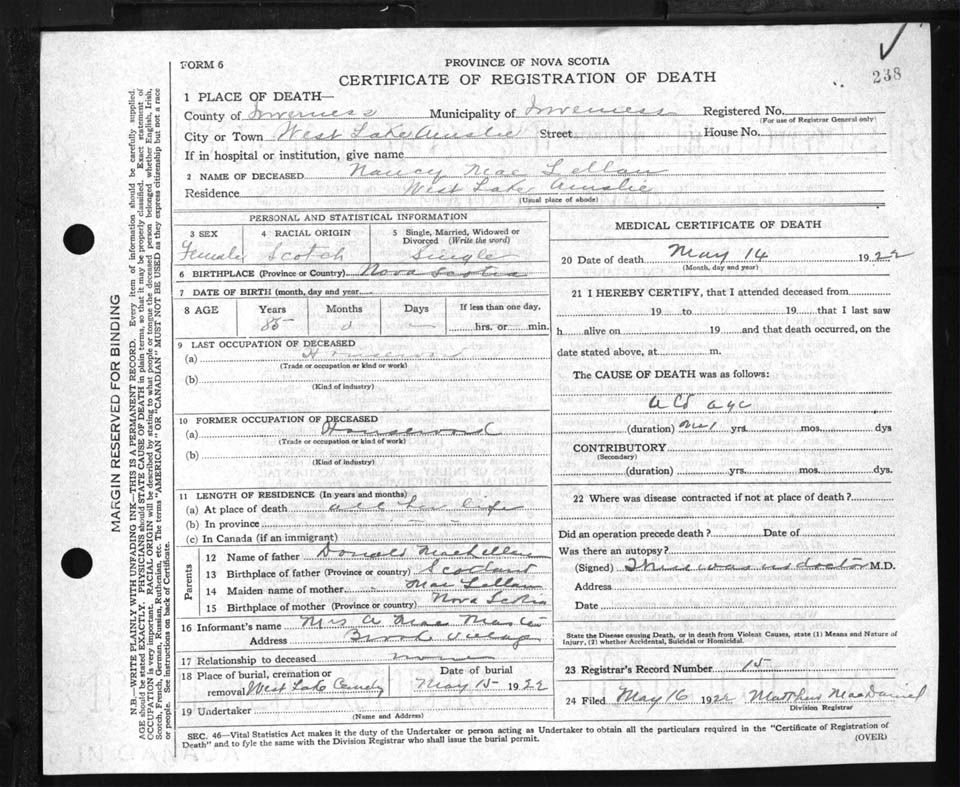 FORM 6
PROVINCE OF NOVA SCOTIA
CERTIFICATE OF REGISTRATION OF DEATH
238
1 PLACE OF DEATH—
County of Inverness Municipality of Inverness Registered No.
(For use of Registrar General only)
City or Town West Lake Ainslie Street House No.
If in hospital or institution, give name
2 NAME OF DECEASED Nancy Mac Lellan
Residence West Lake Ainslie
(Usual place of abode)
PERSONAL AND STATISTICAL INFORMATION
3 SEX Female
4 RACIAL ORIGIN Scotch
5 Single, Married, Widowed or Divorced (Write the word) Single
6 BIRTHPLACE (Province or Country) Nova Scotia
7 DATE OF BIRTH (month, day and year
8 AGE Years Months Days If less than one day,
85 hrs. or min.
9 LAST OCCUPATION OF DECEASED
(a)
(Trade or occupation or kind or work)
(b)
(Kind of industry)
10 FORMER OCCUPATION OF DECEASED
(a)
(Trade or occupation or kind of work)
(b)
(Kind of industry)
11 LENGTH OF RESIDENCE (In years and months)
(a) At place of death all her life
(b) In province
(c) In Canada (if an immigrant)
Parents
12 Name of father Donald MacLellan
13 Birthplace of father (Province or country) Scotland
14 Maiden name of mother Mac Lellan
15 Birthplace of mother (Province or country) Nova Scotia
16 Informant's name Mrs A Mac Master
Address Brook Village
17 Relationship to deceased none
18 Place of burial, cremation or removal West Lake Date of burial May 15 1922
19 Undertaker
(Name and Address)
MEDICAL CERTIFICATE OF DEATH
20 Date of death May 14 1922
(Month, day and year)
21 I HEREBY CERTIFY, that I attended deceased from
19 to 19 that I last saw
h alive on 19 and that death occurred, on the
date stated above, at m.
The CAUSE OF DEATH was as follows:
old age
(duration) yrs. mos. dys
CONTRIBUTORY
(Secondary)
(duration) yrs. mos. dys.
22 Where was disease contracted if not at place of death?
Did an operation precede death? Date of
Was there an autopsy?
(Signed) There was no doctor M.D.
Address
Date
State the Disease causing Death, or in death from Violent Causes, state (1) Means and Nature of
Injury, (2) whether Accidental, Suicidal or Homicidal.
23 Registrar's Record Number 15
24 Filed May 16 1922 Matthew MacDaniel
Division Registrar
SEC. 46—Vital Statistics Act makes it the duty of the Undertaker or person acting as Undertaker to obtain all the particulars required in the "Certificate of Registration of
Death" and to fyle the same with the Division Registrar who shall issue the burial permit.
(OVER)
MARGIN RESERVED FOR BINDING
N.B.—WRITE PLAINLY WITH UNFADING INK—THIS IS A PERMANENT RECORD. Every item of information should be carefully supplied.
AGE should be stated EXACTLY. PHYSICIANS should STATE CAUSE OF DEATH in plain terms, so that it may be properly classified. Exact statement of
OCCUPATION is very important. RACIAL ORIGIN will be described by stating to what people or tongue the deceased person belonged whether English, Irish,
Scotch, French, German, Russian, Ruthenian, etc. The terms "AMERICAN" OR "CANADIAN" MUST NOT BE USED as they express citizenship but not a race
or people. See instructions on back of Certificate.